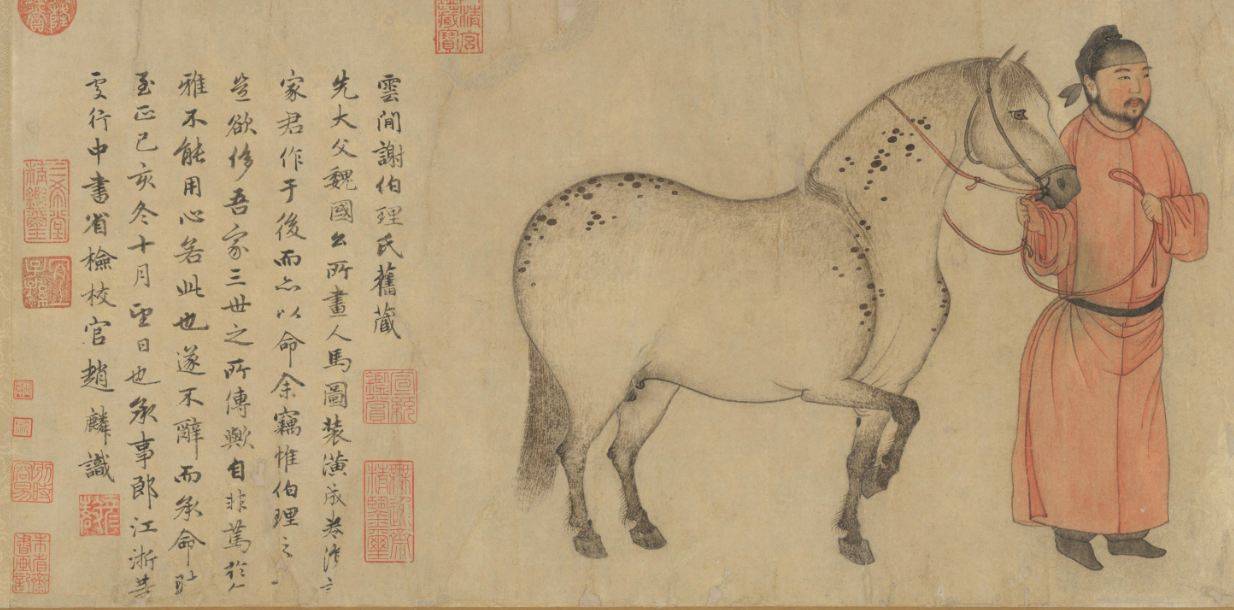 雲間謝伯理氏舊藏
先大父魏國公所畫人馬圖裝潢成卷
家君作于後而亦以命余竊惟伯理之
豈欲侈吾家三世之所傳歟自非篤於
雅不能用心若此也遂不辭而承命
至正己亥冬十月望日也承事郎江浙等
處行中書省檢校官趙麟識